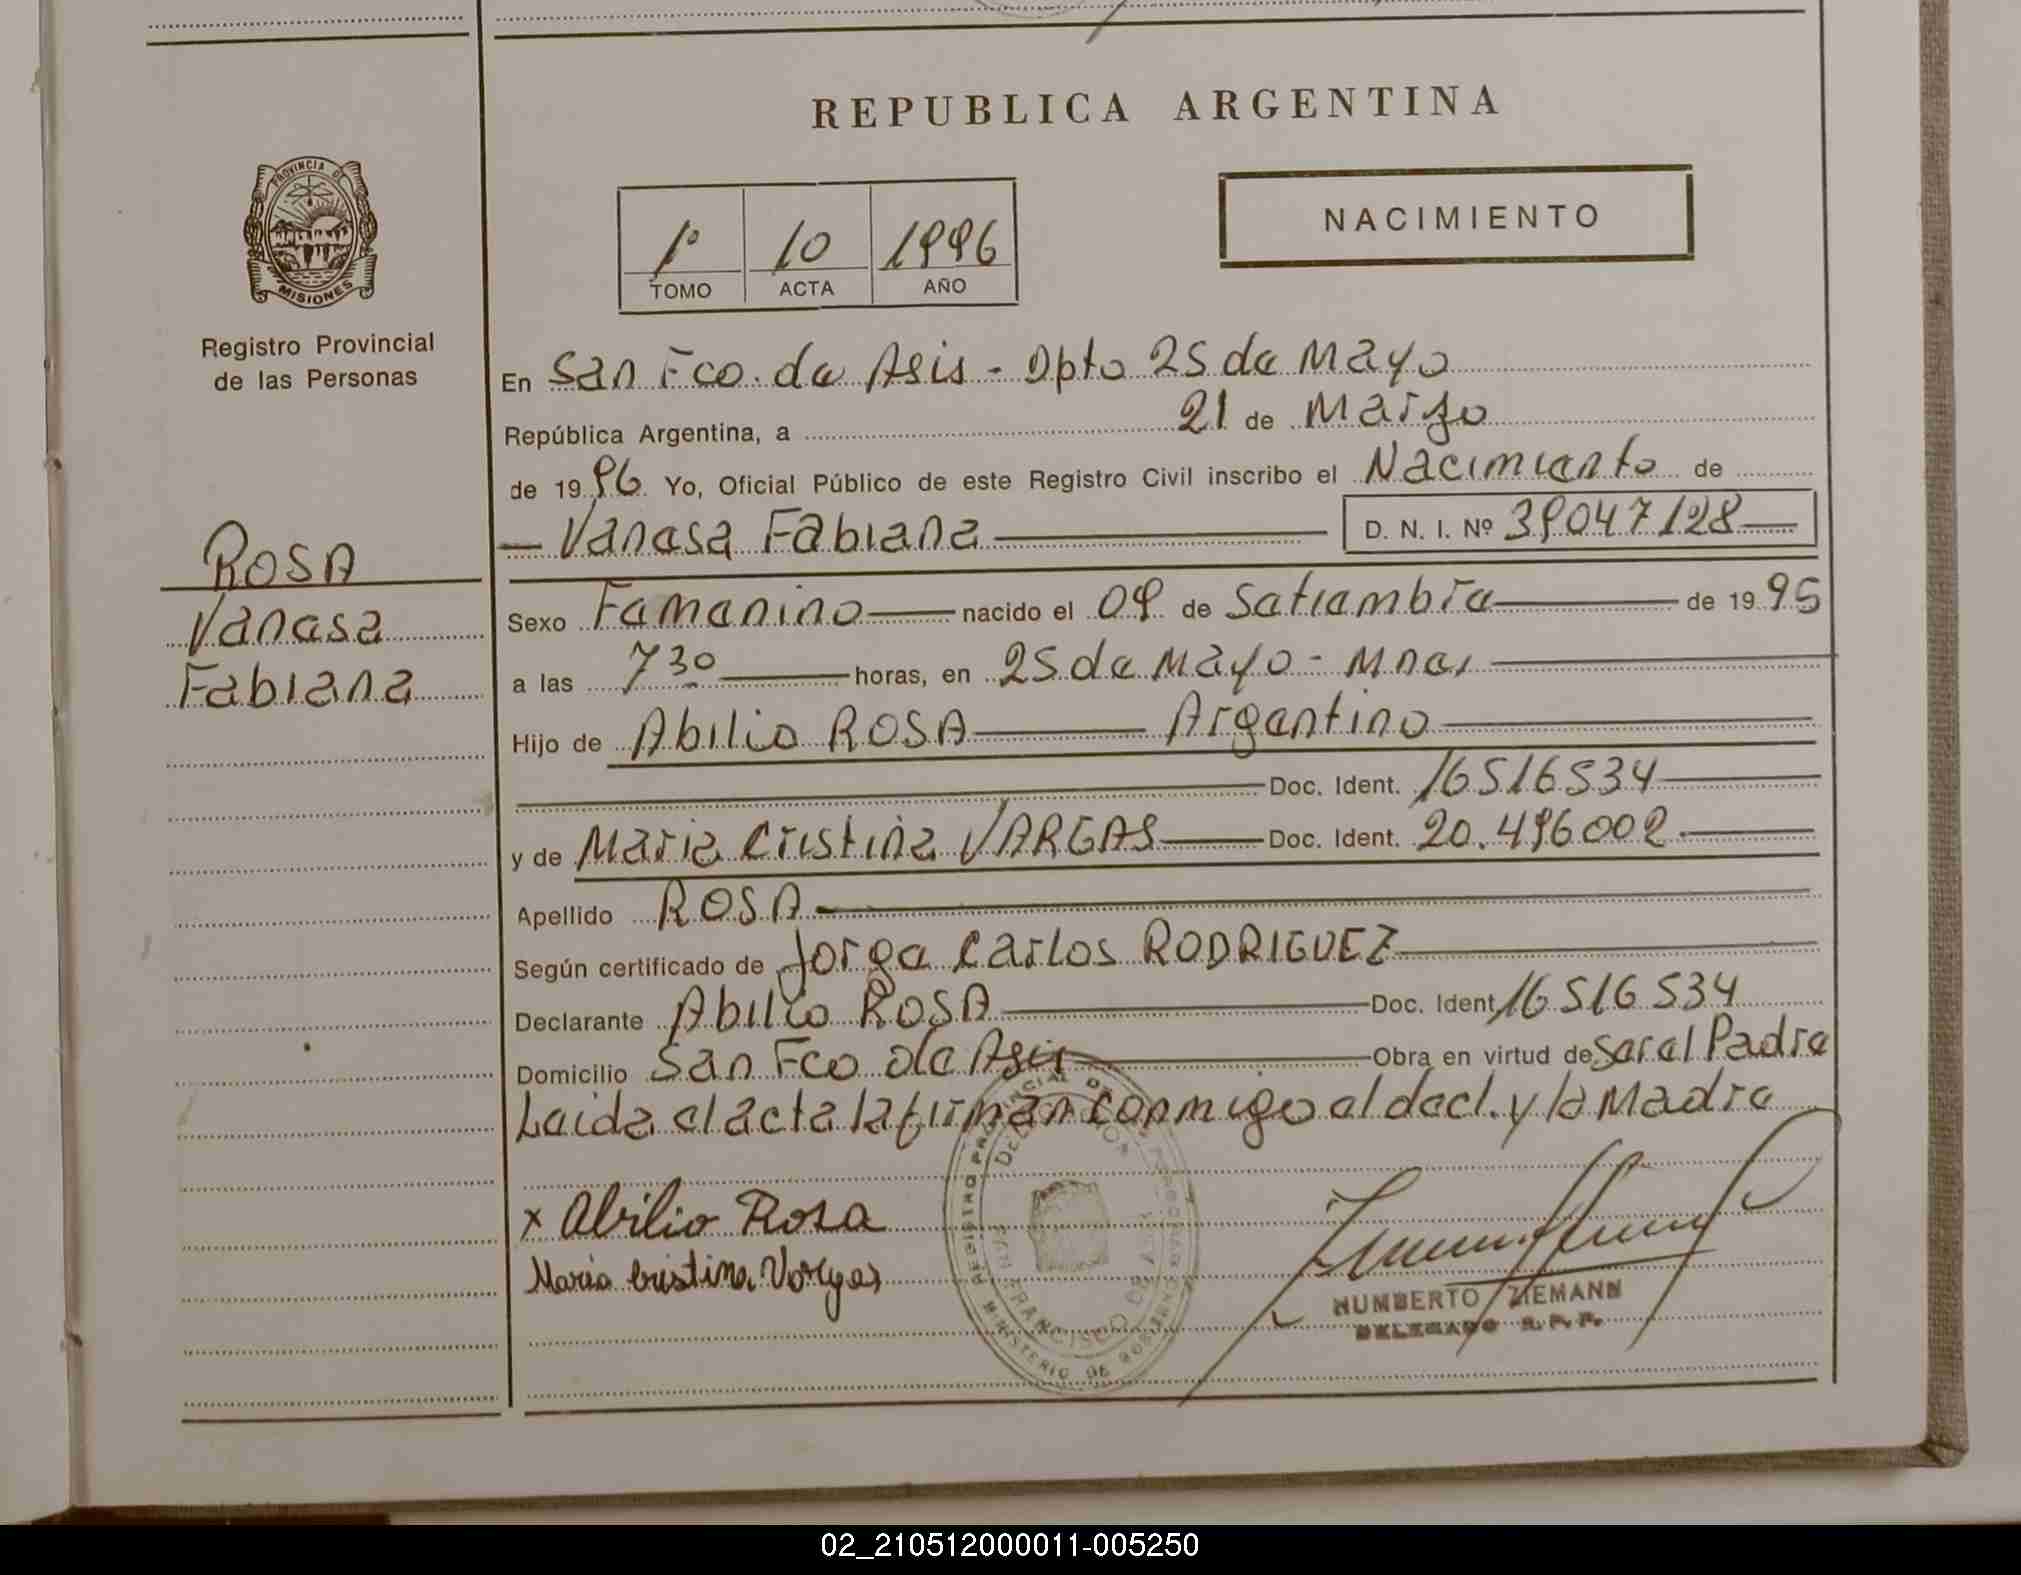 REPUBLICA ARGENTINA
PROVINCIA DE
MISIONES
Registro Provincial
de las Personas
NACIMIENTO
1º 10 1996
TOMO ACTA AÑO
En San Fco. de Asis - Dpto 25 de Mayo
República Argentina, a 21 de Marzo
de 1996 Yo, Oficial Público de este Registro Civil inscribo el Nacimiento de
Vanesa Fabiana D. N. I. Nº 39047128
ROSA
Vanesa
Fabiana
Sexo Femenino nacido el 09 de Setiembre de 1995
a las 7 30 horas, en 25 de Mayo - Mnes
Hijo de Abilio ROSA Argentino
Doc. Ident. 16516534
y de Maria Cristina VARGAS Doc. Ident. 20.496002
Apellido ROSA
Según certificado de Jorge Carlos RODRIGUEZ
Declarante Abilio ROSA Doc. Ident. 16516534
Domicilio San Fco de Asis Obra en virtud de Ser el Padre
Leida el acta la firman conmigo el decl. y la Madre
x Abilio Rosa
Maria Cristina Vargas
REGISTRO PROVINCIAL DE
MINISTERIO DE GOBIERNO
FRANCISCO DE
HUMBERTO ZIEMANN
DELEGADO R. P. P.
02_210512000011-005250